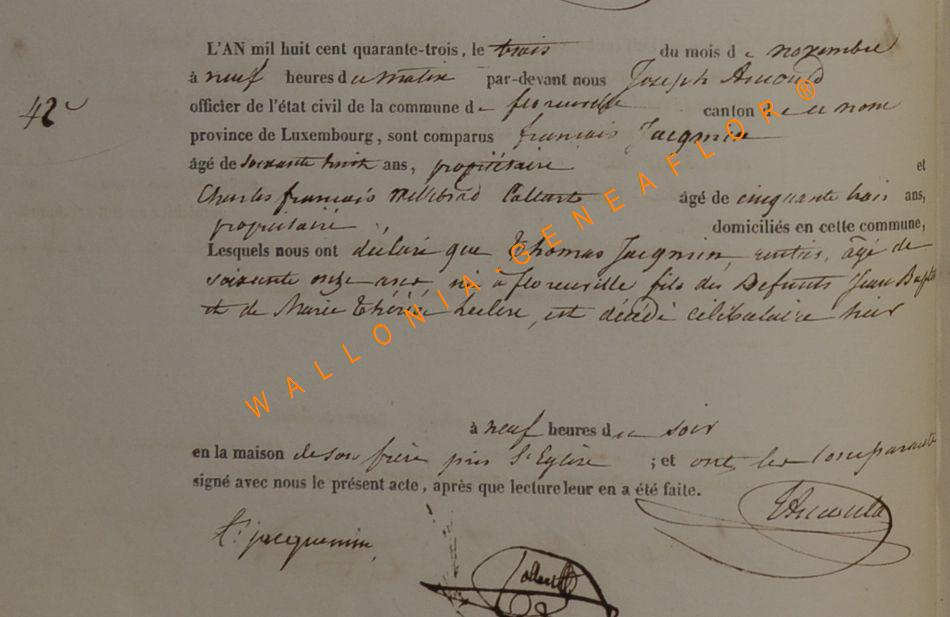 L'AN mil huit cent quarante-trois, le trois du mois de novembre
à neuf heures du matin par-devant nous Joseph Arnould
42e officier de l'état civil de la commune de florenville canton de ce nom
province de Luxembourg, sont comparus françois Jacqmin
âgé de soixante huit ans, propriétaire et
Charles françois Collart âgé de cinquante trois ans,
propriétaire domiciliés en cette commune,
Lesquels nous ont déclaré que Thomas Jacqmin, rentier, âgé de
soixante onze ans, né à florenville fils des Defunts Jean Bapte
et de Marie thérèse Leclere, est décédé célibataire hier
à neuf heures du soir
en la maison de son frère près l'Eglise ; et ont les Comparants
signé avec nous le présent acte, après que lecture leur en a été faite.
Arnould
fs jacquemin
Collart
WALLONIA-GENEAFLOR ®